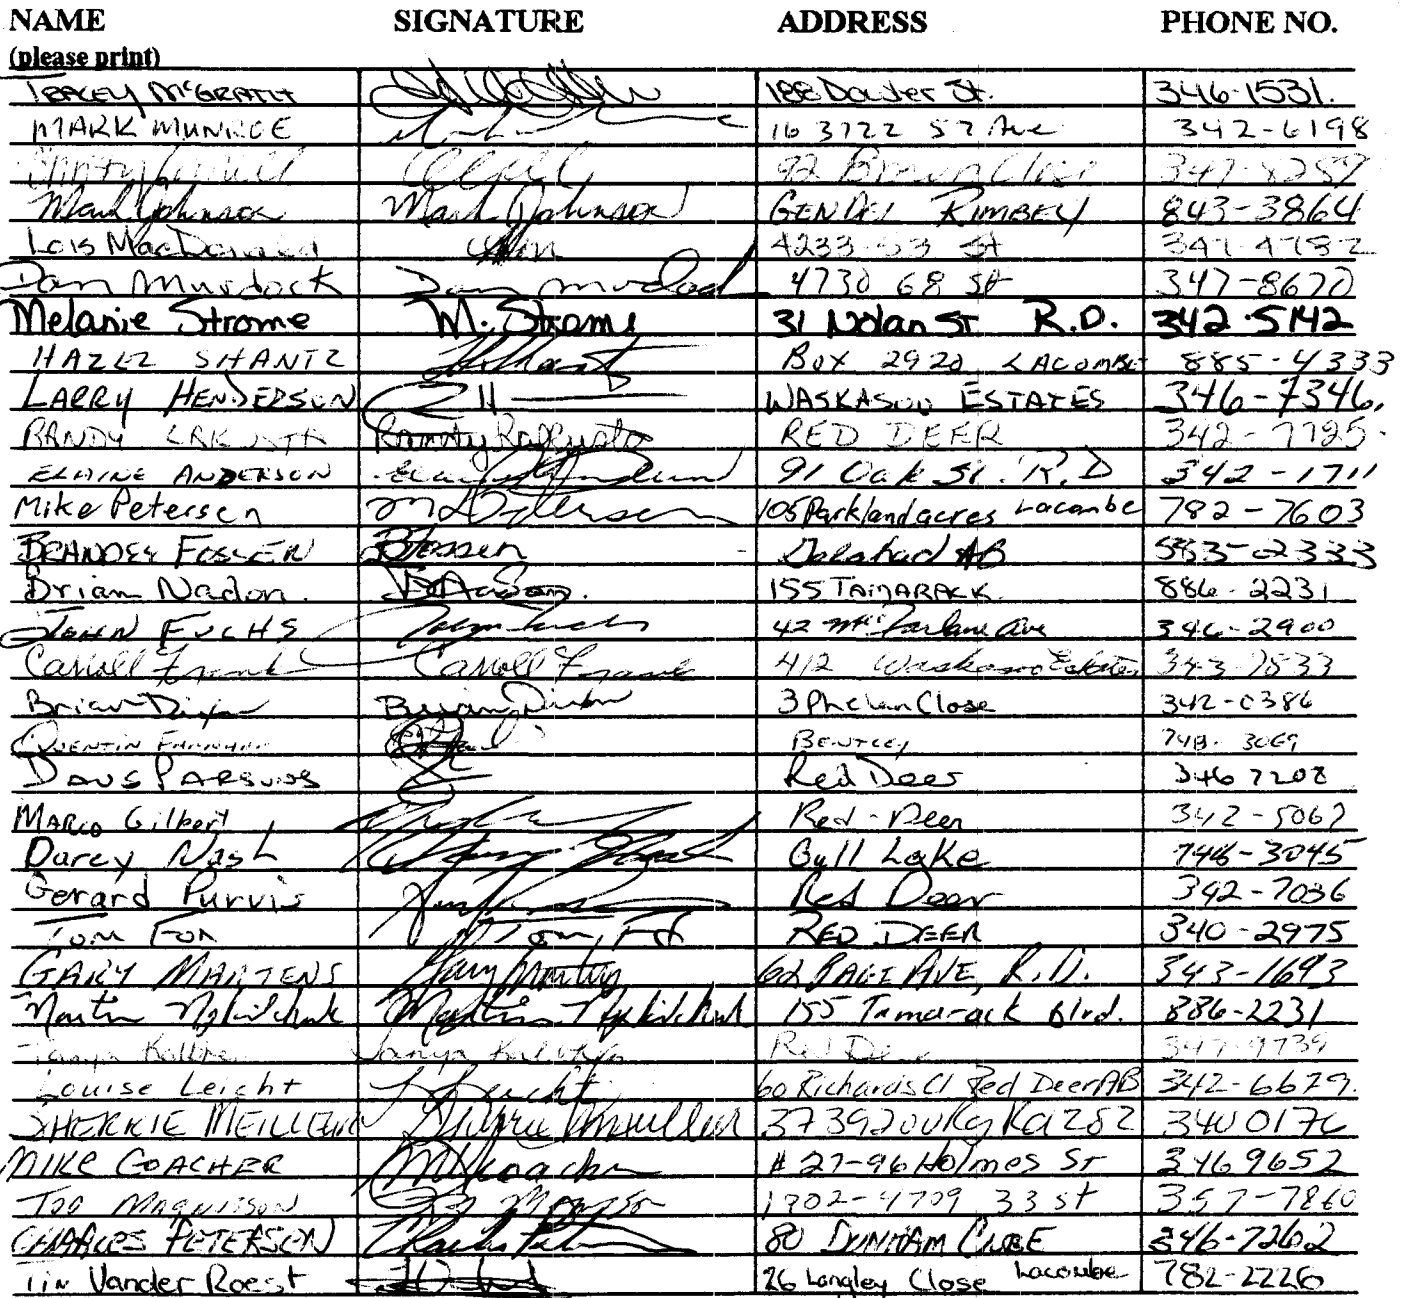 NAME SIGNATURE ADDRESS PHONE NO.
(please print)
TRACEY McGRATH 188 Dowler St. 346-1531.
MARK MUNROE 16 3722 57 Ave 342-6198
92 Close
Mark Johnson Mark Johnson GEN DEL RIMBEY 843-3864
Lois MacDonald 4233-53 St 347-4782
Dan Murdock Dan Murdock 4730 68 St 347-8670
Melanie Strome M. Strome 31 Nolan ST R.D. 342-5142
HAZEL SHANTZ Box 2920 LACOMBE 885-4333
LARRY HENDERSON WASKASOO ESTATES 346-7346.
RANDY RED DEER 342-7725
ELAINE ANDERSON 91 Oak St. R.D 342-1711
Mike Petersen 105 Parkland acres Lacombe 782-7603
155 TAMARACK 886-2231
Brian Nadon.
JOHN FUCHS John Fuchs 42 McFarlane Ave 346-2900
Carroll Frank Carroll Frank 412 Waskasoo Estates 343-7833
Brian Dixon Brian Dixon 3 Phelan Close 342-0386
QUENTIN BENTLEY 748-3069
PARSONS Red Deer 346 7208
MARCO Gilbert Red-Deer 342-5067
Darcy Nash Darcy Nash Gull Lake 746-3045
Gerard Purvis Red Deer 342-7036
Tom Fox Tom Fox RED DEER 340-2975
GARY MARTENS Gary Martens 62 PAGE AVE, R.D. 343-1693
Martin Martin 155 Tamarack Blvd. 886-2231
Tanya Tanya Red Deer 347-9739
Louise Leicht L Leicht 60 Richards Cl Red Deer AB 342-6679.
SHERRIE MEILLEUR Sherrie Meilleur 340 0176
MIKE GOACHER M Goacher # 27-96 Holmes St 346 9652
1702-4709 33 st 357-7860
CHARLES PETERSON Charles 80 DUNHAM CLOSE 346-7262
Tim Vander Roest 26 Langley Close Lacombe 782-2226